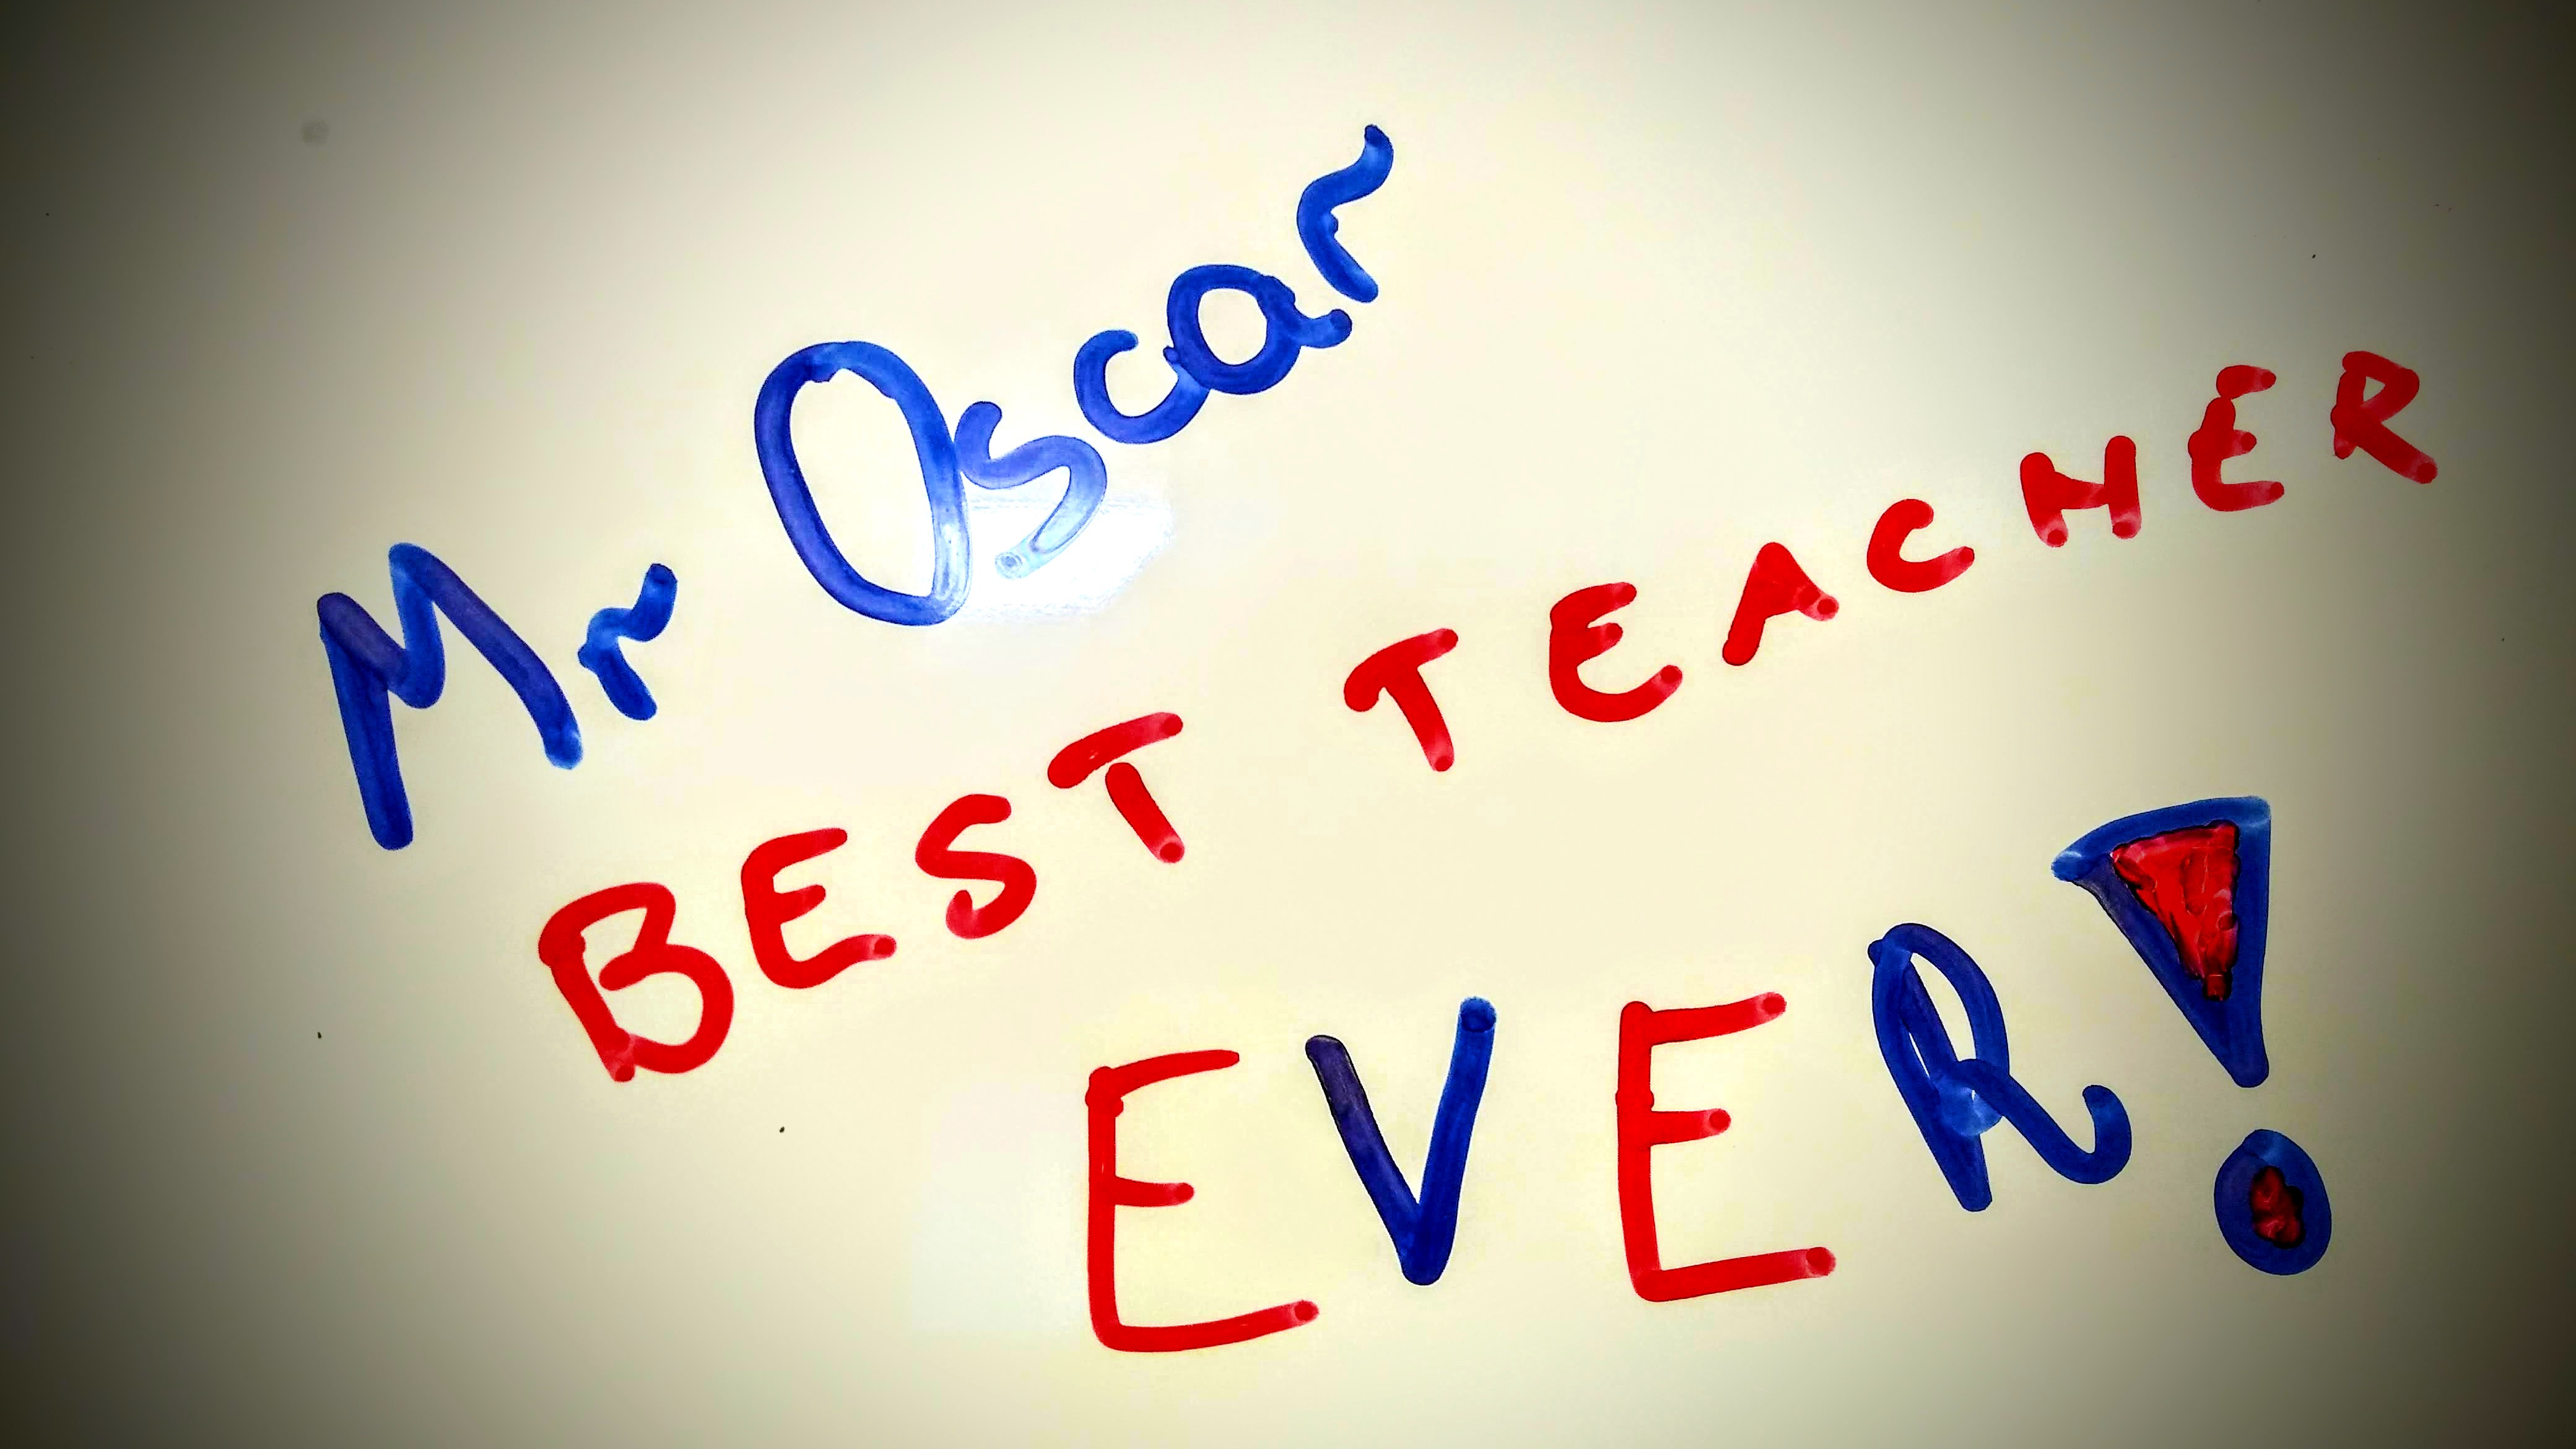 Mr Oscar
BEST TEACHER
EVER!